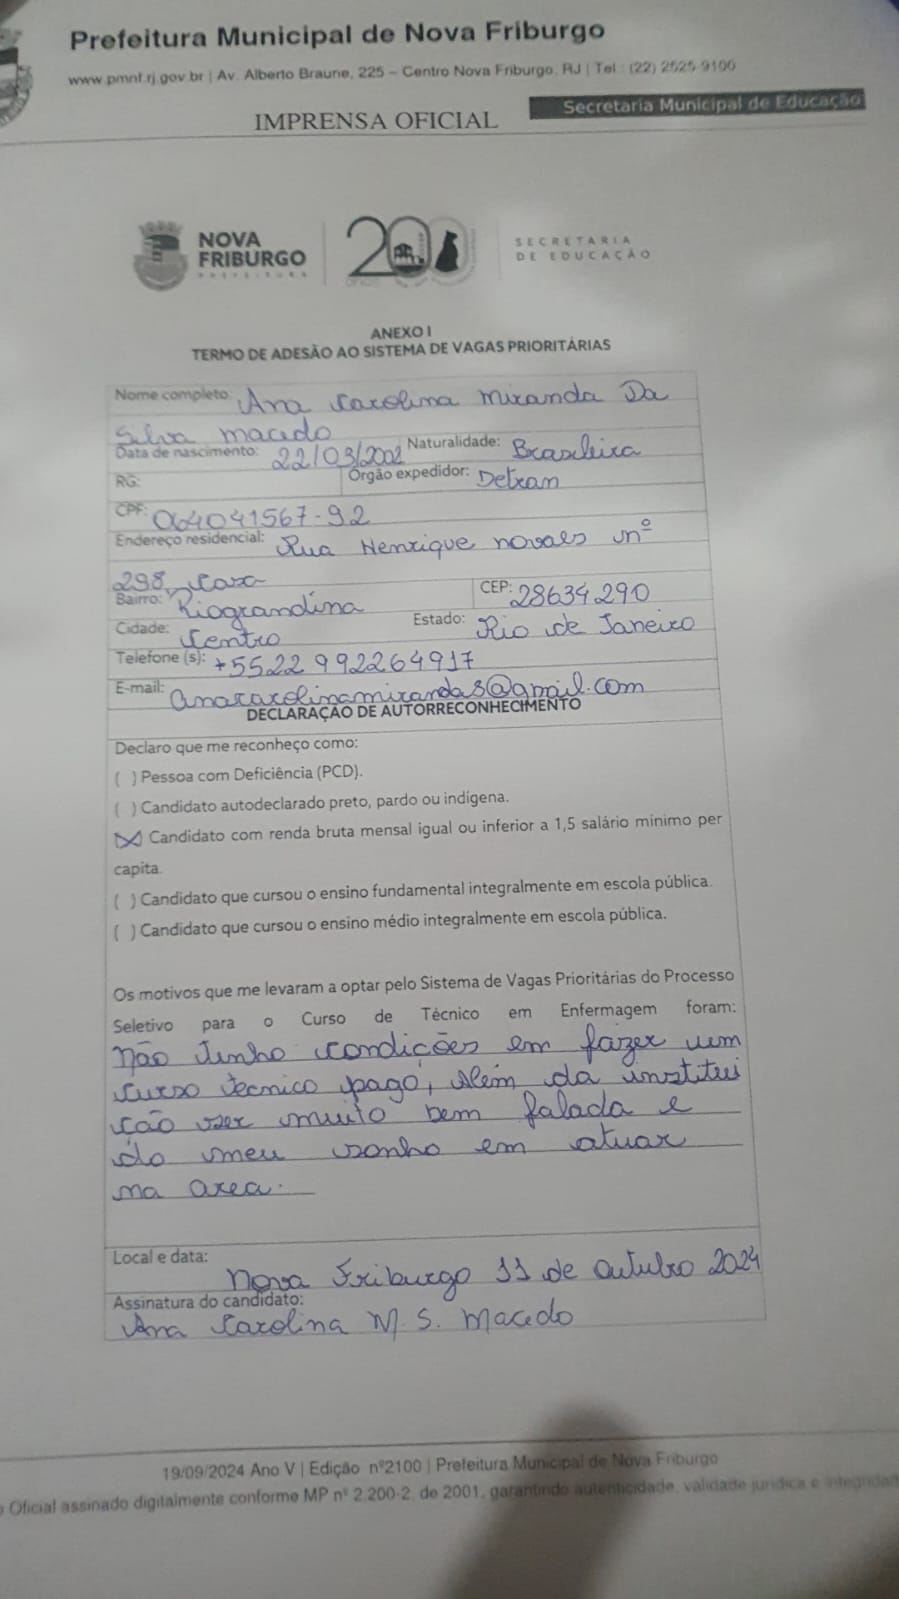 Prefeitura Municipal de Nova Friburgo
www.pmnf.rj.gov.br | Av. Alberto Braune, 225 – Centro Nova Friburgo, RJ | Tel.: (22) 2525-9100
Secretaria Municipal de Educação
IMPRENSA OFICIAL
NOVA FRIBURGO
PREFEITURA
200
SECRETARIA
DE EDUCAÇÃO
ANEXO I
TERMO DE ADESÃO AO SISTEMA DE VAGAS PRIORITÁRIAS
Nome completo: Ana Carolina Miranda Da
Silva macedo
Data de nascimento: 22/03/2002 Naturalidade: Brasileira
RG: Órgão expedidor: Detran
CPF: 064041567-92
Endereço residencial: Rua Henrique novaes nº
298, Casa
Bairro: Riograndina CEP: 28634290
Cidade: Centro Estado: Rio de Janeiro
Telefone (s): +5522 992264917
E-mail: anacarolinamiranda8@gmail.com
DECLARAÇÃO DE AUTORRECONHECIMENTO
Declaro que me reconheço como:
( ) Pessoa com Deficiência (PCD).
( ) Candidato autodeclarado preto, pardo ou indígena.
(X) Candidato com renda bruta mensal igual ou inferior a 1,5 salário mínimo per
capita.
( ) Candidato que cursou o ensino fundamental integralmente em escola pública.
( ) Candidato que cursou o ensino médio integralmente em escola pública.
Os motivos que me levaram a optar pelo Sistema de Vagas Prioritárias do Processo
Seletivo para o Curso de Técnico em Enfermagem foram:
não tenho condições em fazer um
curso técnico pago, Além da institui
ção ser muito bem falada e
do meu sonho em atuar
na area.
Local e data: Nova Friburgo 11 de outubro 2024
Assinatura do candidato:
Ana Carolina M. S. Macedo
19/09/2024 Ano V | Edição nº2100 | Prefeitura Municipal de Nova Friburgo
Oficial assinado digitalmente conforme MP nº 2.200-2, de 2001, garantindo autenticidade, validade jurídica e integridade